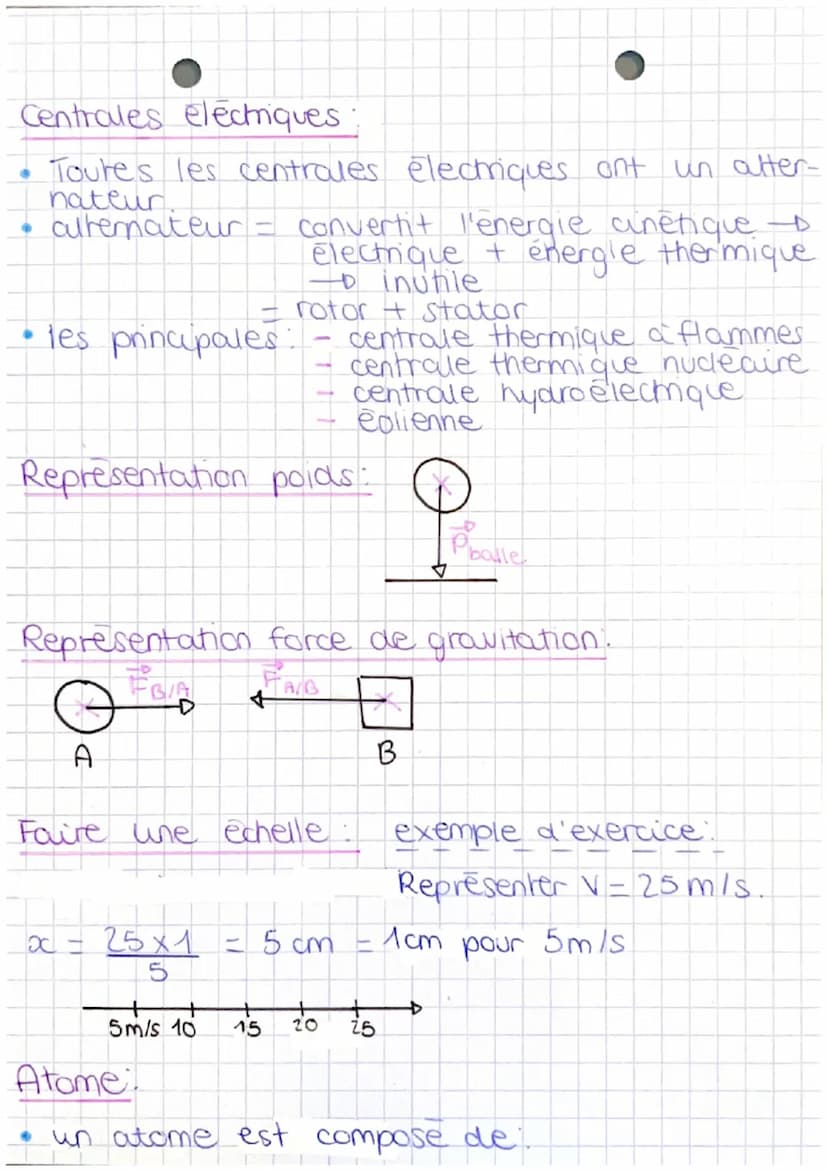 Centrales électriques :
• Toutes les centrales électriques ont un alter-
nateur.
• alternateur = convertit l'énergie cinétique →
électrique + énergie thermique
→ inutile
= rotor + stator
• les principales : - centrale thermique à flammes
- centrale thermique nucléaire
- centrale hydroélectrique
- éolienne
Représentation poids :
P balle
Représentation force de gravitation :
F B/A F A/B
A B
Faire une échelle : exemple d'exercice :
Représenter V = 25 m/s.
x = 25 x 1 / 5 = 5 cm = 1cm pour 5m/s
5m/s 10 15 20 25
Atome :
• un atome est composé de :